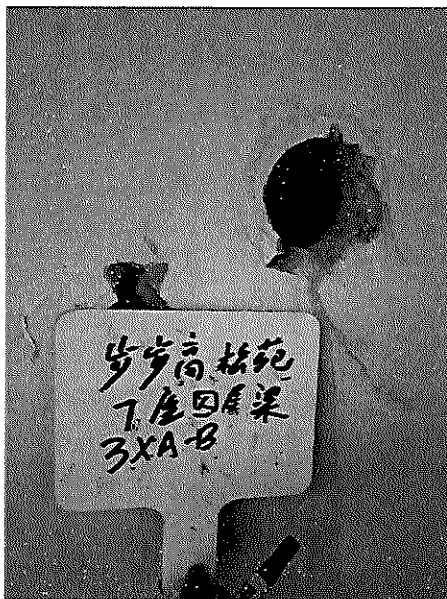 步步高松苑
7座四层梁
3XA-B